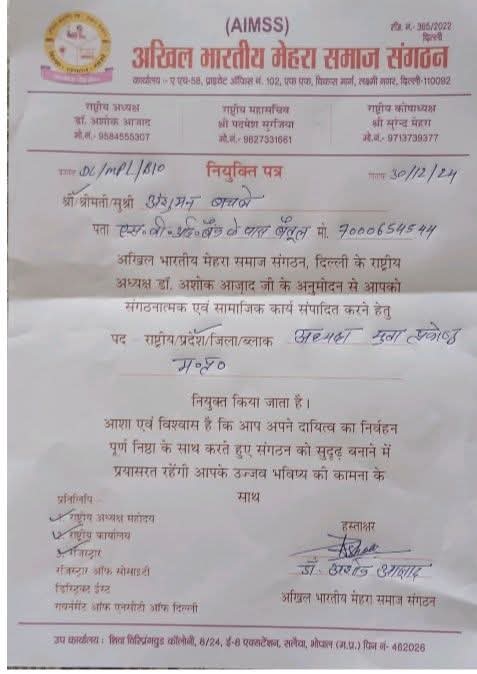 (AIMSS)
रजि. नं.- 365/2022
दिल्ली
अखिल भारतीय मेहरा समाज संगठन
कार्यालय:- ए एच-58, प्राइवेट ऑफिस नं. 102, एफ एफ, विकास मार्ग, लक्ष्मी नगर, दिल्ली-110092
राष्ट्रीय अध्यक्ष
डॉ. अशोक आजाद
मो.नं.- 9584555307
राष्ट्रीय महासचिव
श्री पदमेश सुरजिया
मो.नं.- 9827331661
राष्ट्रीय कोषाध्यक्ष
श्री सुरेन्द्र मेहरा
मो.नं.- 9713739377
क्रमांक DL/MPL/B10 नियुक्ति पत्र दिनांक 30/12/24
श्री/श्रीमती/सुश्री अंशुमन
पता एस॰बी॰आई॰बैंक के पास बैतूल मो. 7000654544
अखिल भारतीय मेहरा समाज संगठन, दिल्ली के राष्ट्रीय
अध्यक्ष डॉ. अशोक आज़ाद जी के अनुमोदन से आपको
संगठनात्मक एवं सामाजिक कार्य संपादित करने हेतु
पद राष्ट्रीय/प्रदेश/जिला/ब्लाक अध्यक्ष युवा प्रकोष्ठ
म॰प्र॰
नियुक्त किया जाता है।
आशा एवं विश्वास है कि आप अपने दायित्व का निर्वहन
पूर्ण निष्ठा के साथ करते हुए संगठन को सुदृढ़ बनाने में
प्रयासरत रहेंगी आपके उज्जव भविष्य की कामना के
साथ
प्रतिलिपि -
1. राष्ट्रीय अध्यक्ष महोदय
2. राष्ट्रीय कार्यालय
3. रजिस्ट्रार
रजिस्ट्रार ऑफ सोसाइटी
डिस्ट्रिक्ट ईस्ट
गवर्नमेंट ऑफ एनसीटी ऑफ दिल्ली
हस्ताक्षर
डॉ. अशोक आज़ाद
अखिल भारतीय मेहरा समाज संगठन
उप कार्यालय: शिवा स्प्रिंगवुड कॉलोनी, 8/24, ई-8 एक्सटेंशन, सलैया, भोपाल (म.प्र.) पिन नं- 462026